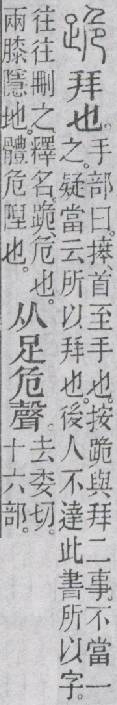 跪拜也。
手部曰。𢷎首至手也。按跪與拜二事。不當一
之。疑當云所以拜也。後人不達此書所以字。
往往刪之。釋名。跪、危也。
兩膝隱地。體危陧也。
从足危聲。
去委切。
十六部。